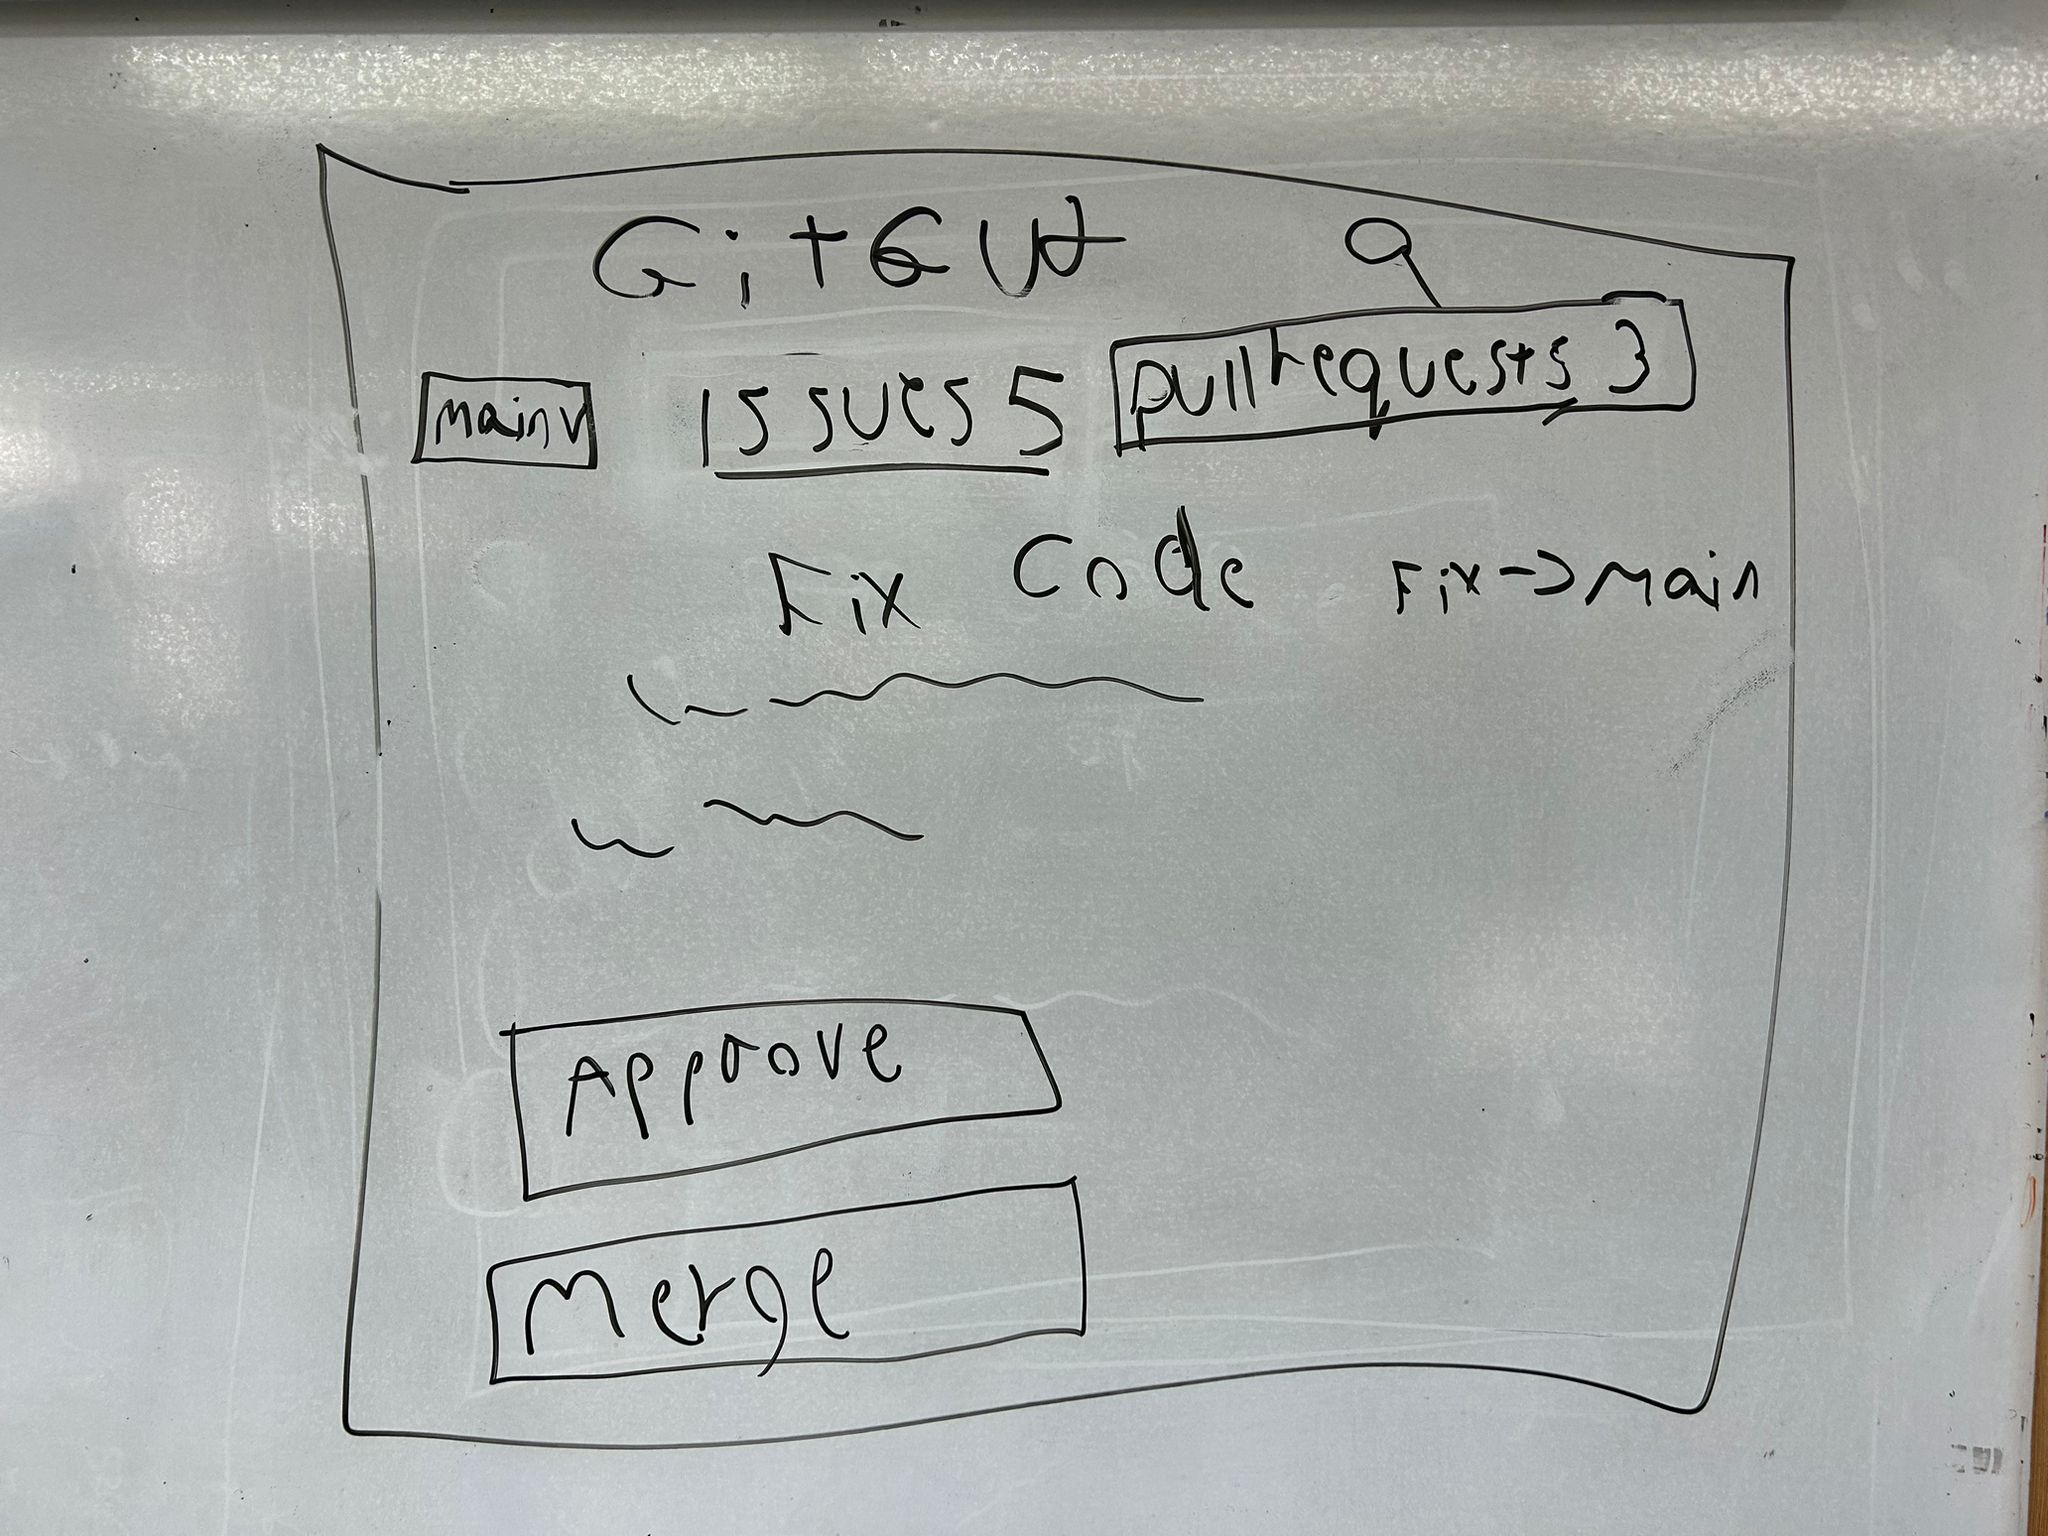 GitGut
main v Issues 5 pull requests 3
Fix Code Fix -> Main
Approve
Merge